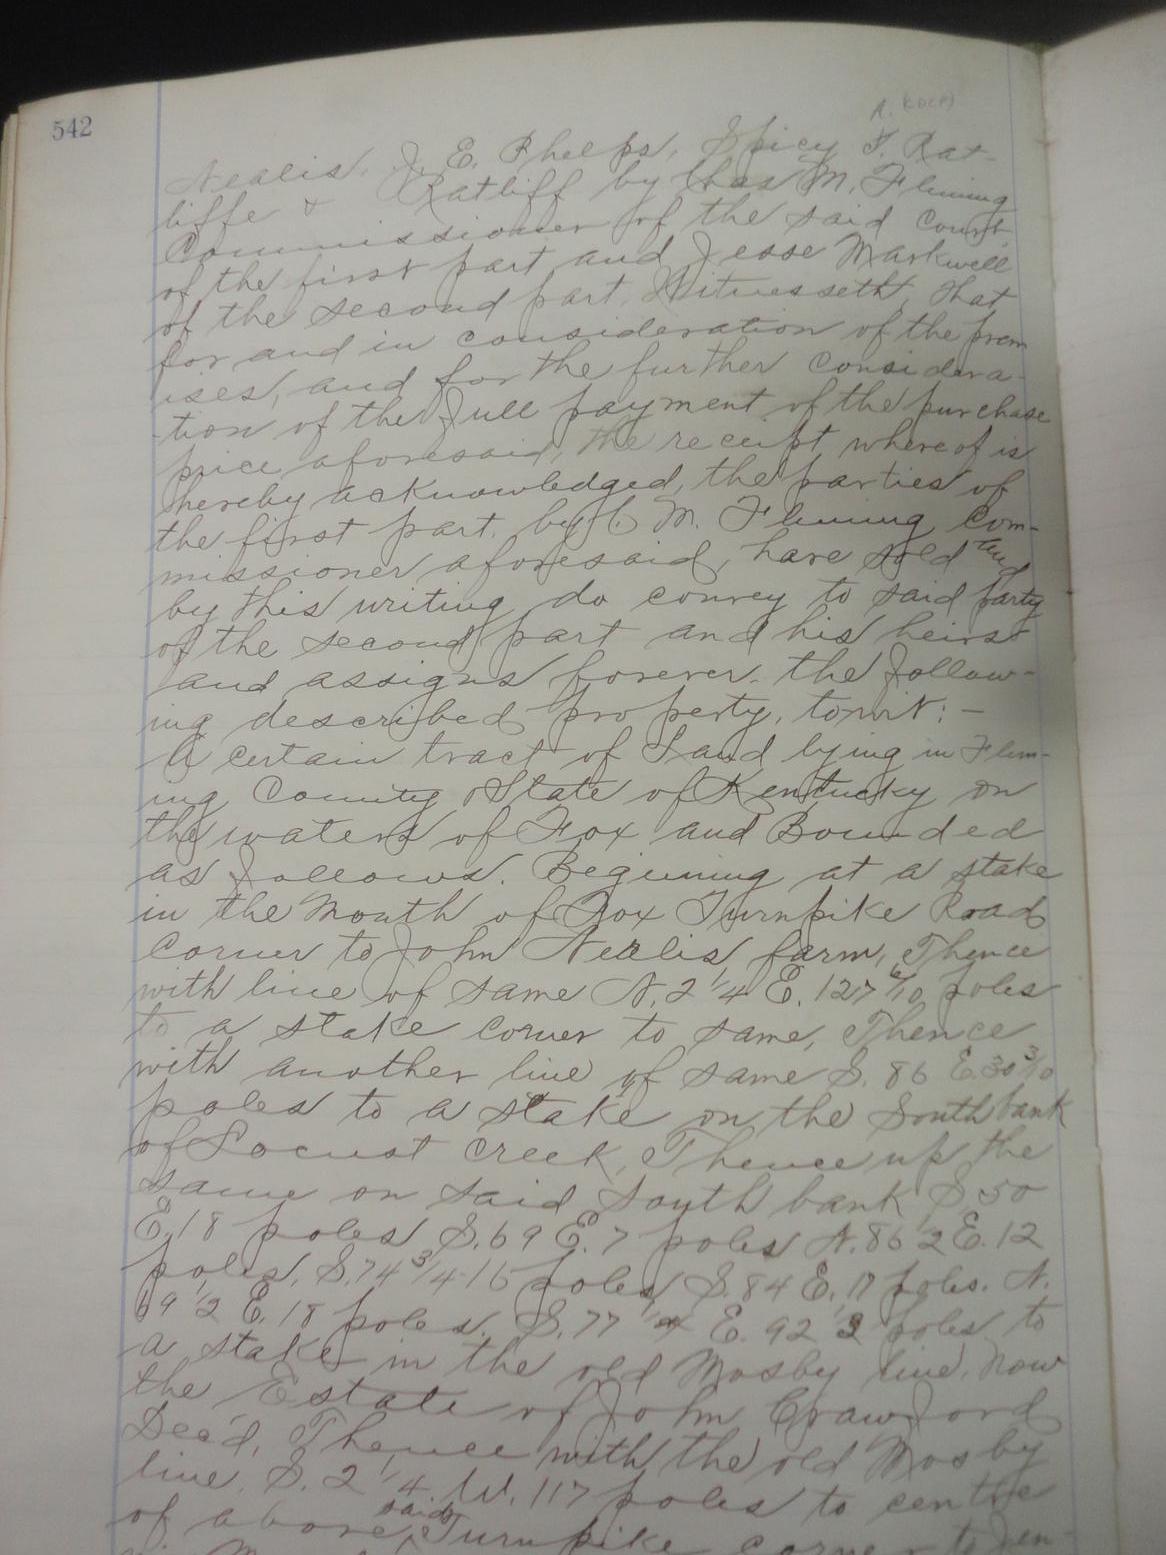 542
Nealis, J. E. Phelps, Spicy T. Rat-
liffe & Ratliff by Chas M. Fleming
Commissioner of the said Court
of the first part and Jesse Markwell
of the second part. Witnesseth, that
for and in consideration of the prem
ises, and for the further considera-
tion of the full payment of the purchase
price aforesaid, the receipt whereof is
hereby acknowledged, the parties of
the first part, by C. M. Fleming Com-
missioner aforesaid, have sold and
by this writing do convey to said party
of the second part and his heirs
and assigns forever. the follow-
ing described property, towit: —
A certain tract of Land lying in Flem-
ing County State of Kentucky on
the waters of Fox and Bounded
as follows. Begining at a stake
in the Mouth of Fox Turnpike Road
Corner to John Nealis farm, Thence
with line of same N. 2 1/4 E. 127 6/10 poles
to a stake corner to same, Thence
with another line of same S. 86 E. 30 3/10
poles to a stake on the South bank
of Locust Creek, Thence up the
same on said South bank S. 50
E. 18 poles S. 69 E. 7 poles N. 86 1/2 E. 12
poles, S. 74 3/4 16 poles S. 84 E. 17 poles. N.
69 1/2 E. 18 poles. S. 77 1/4 E. 92 1/2 poles to
a stake in the old Mosby line, now
the Estate of John Crawford
Dec'd, Thence with the old Mosby
line, S. 2 1/4 W. 117 poles to centre
of above said Turnpike corner to